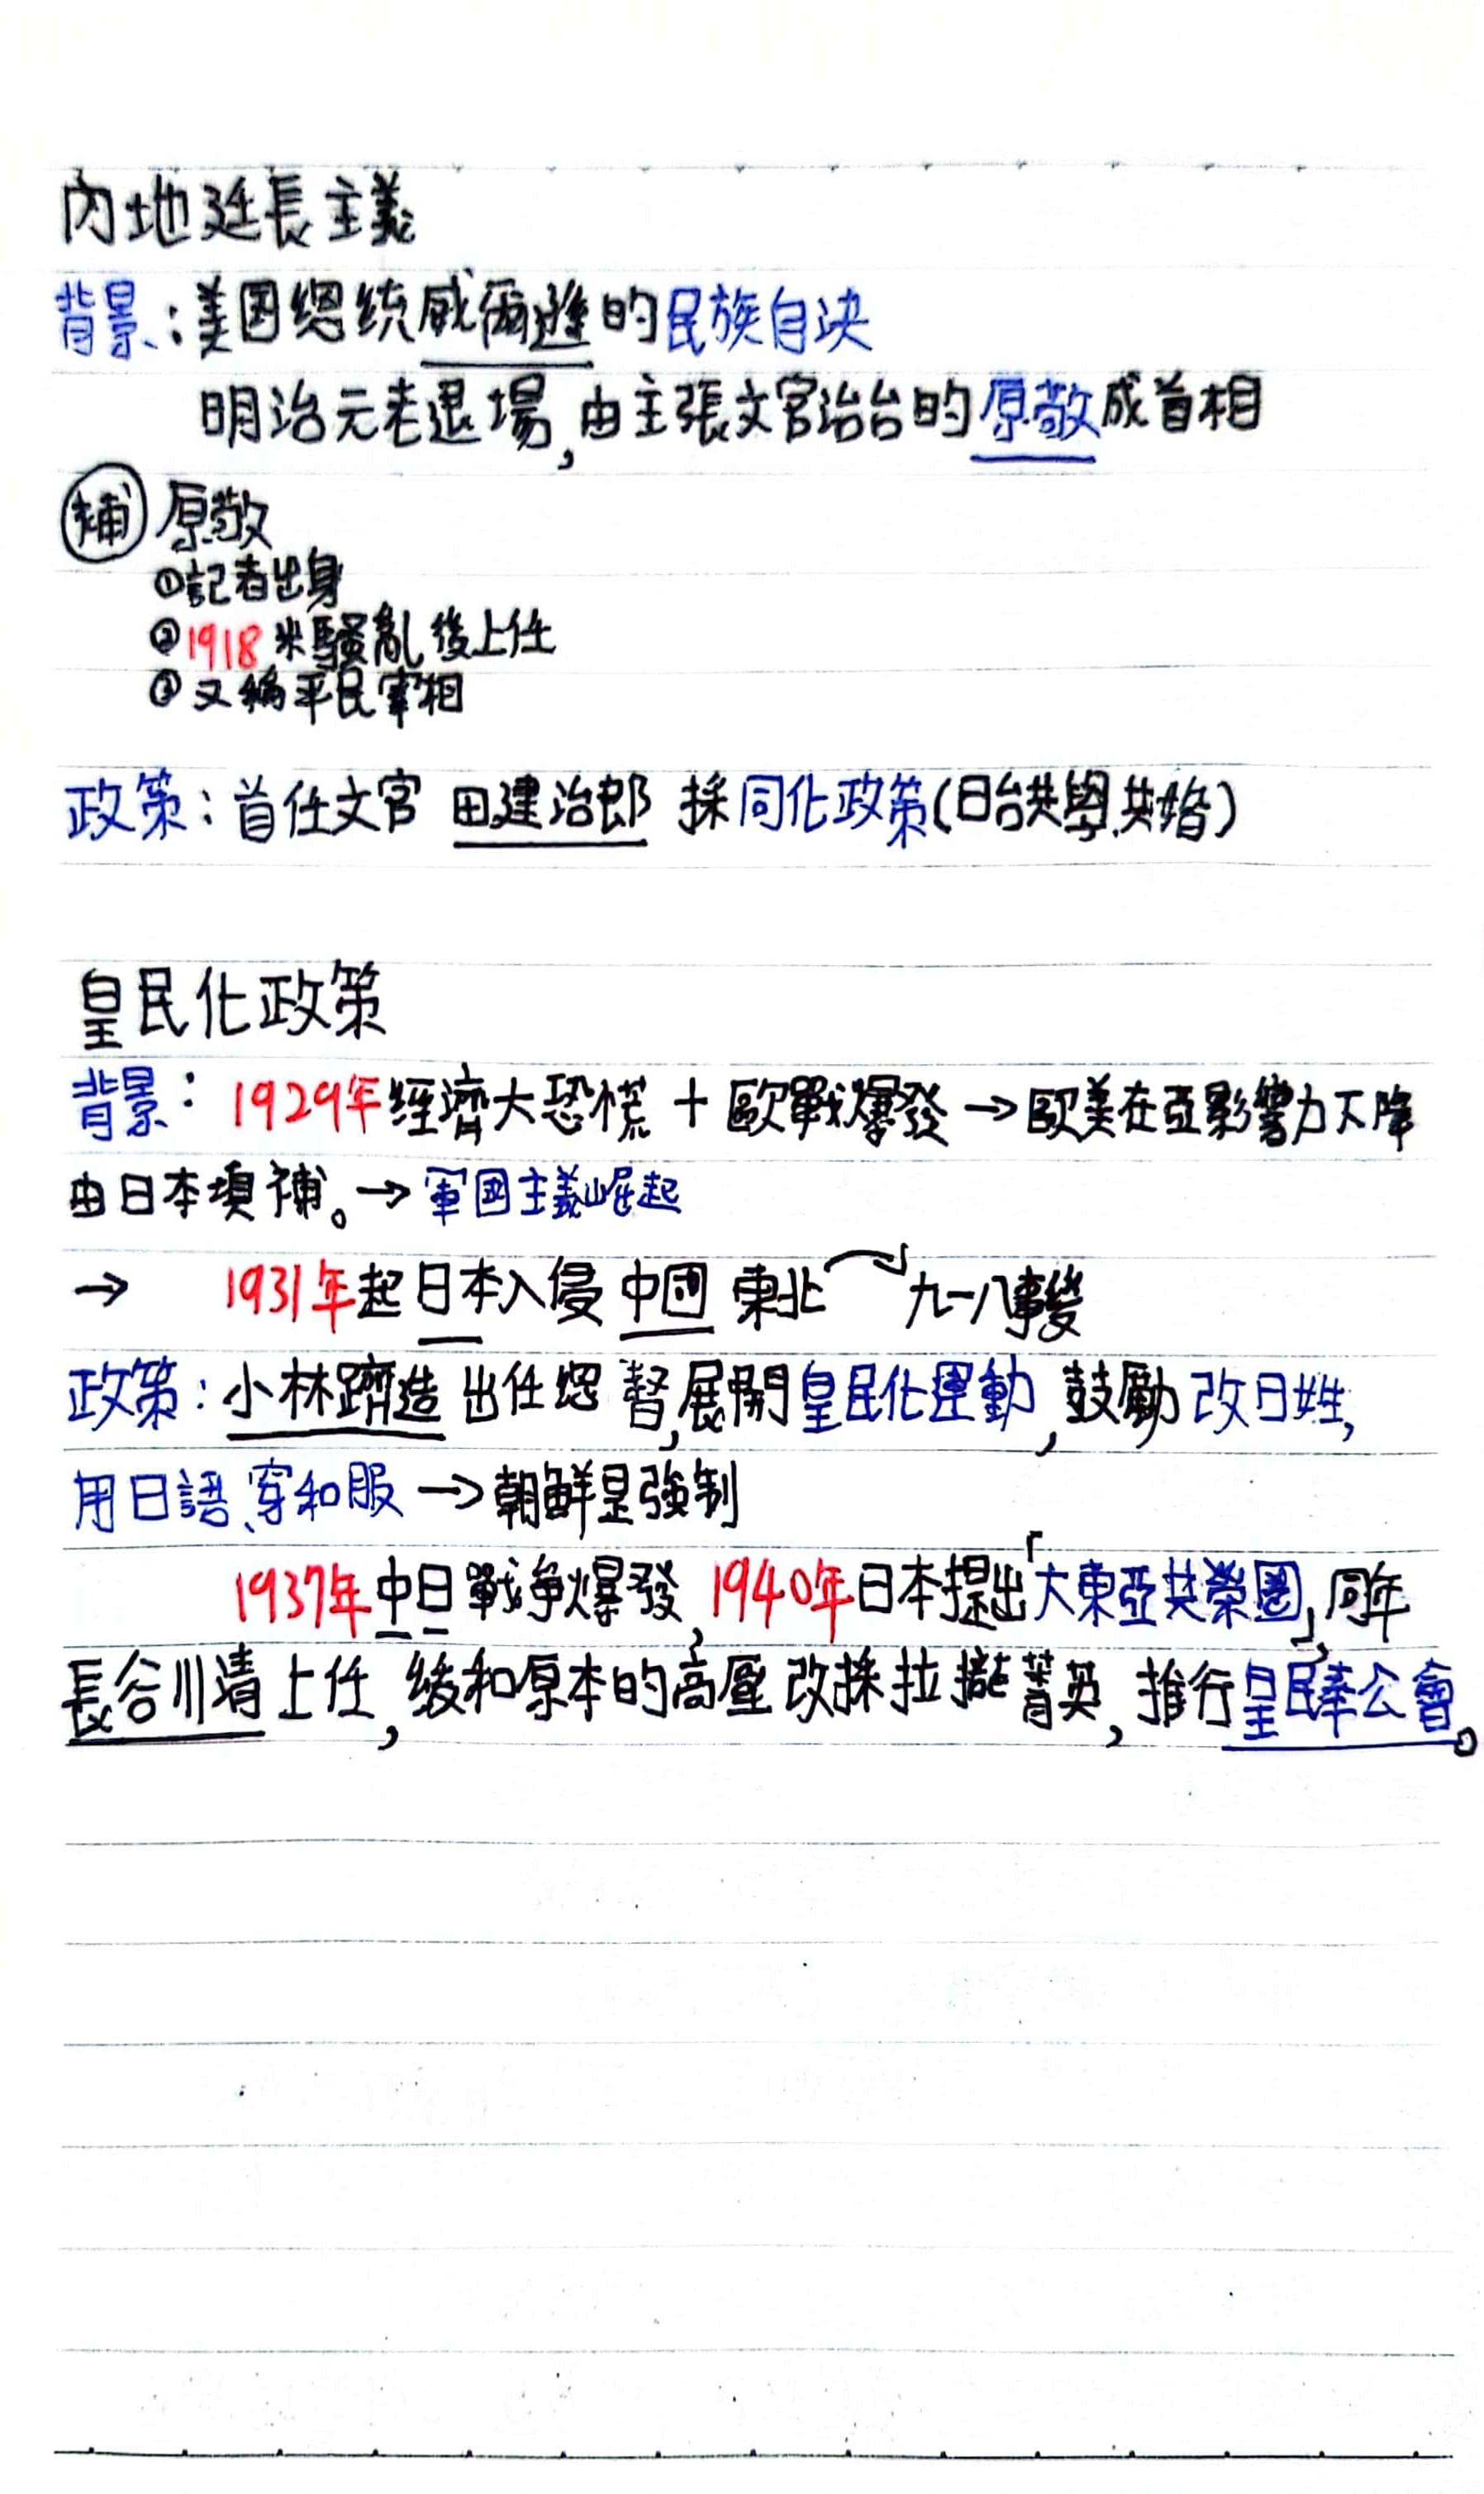 內地延長主義
背景：美国總統威爾遜的民族自決
明治元老退場,由主張文官治台的原敬成首相
補 原敬
①記者出身
②1918米騷亂後上任
③又稱平民宰相
政策：首任文官 田建治郎 採同化政策(日台共學.共婚)
皇民化政策
背景：1929年經濟大恐慌+歐戰爆發→歐美在亞影響力下降
由日本填補。→軍國主義崛起
→ 1931年起日本入侵中國東北 九一八事變
政策：小林躋造出任總督,展開皇民化運動,鼓勵改日姓,
用日語、穿和服→朝鮮是強制
1937年中日戰爭爆發,1940年日本提出「大東亞共榮圈」,同年
長谷川清上任,緩和原本的高壓改採拉攏菁英,推行皇民奉公會。